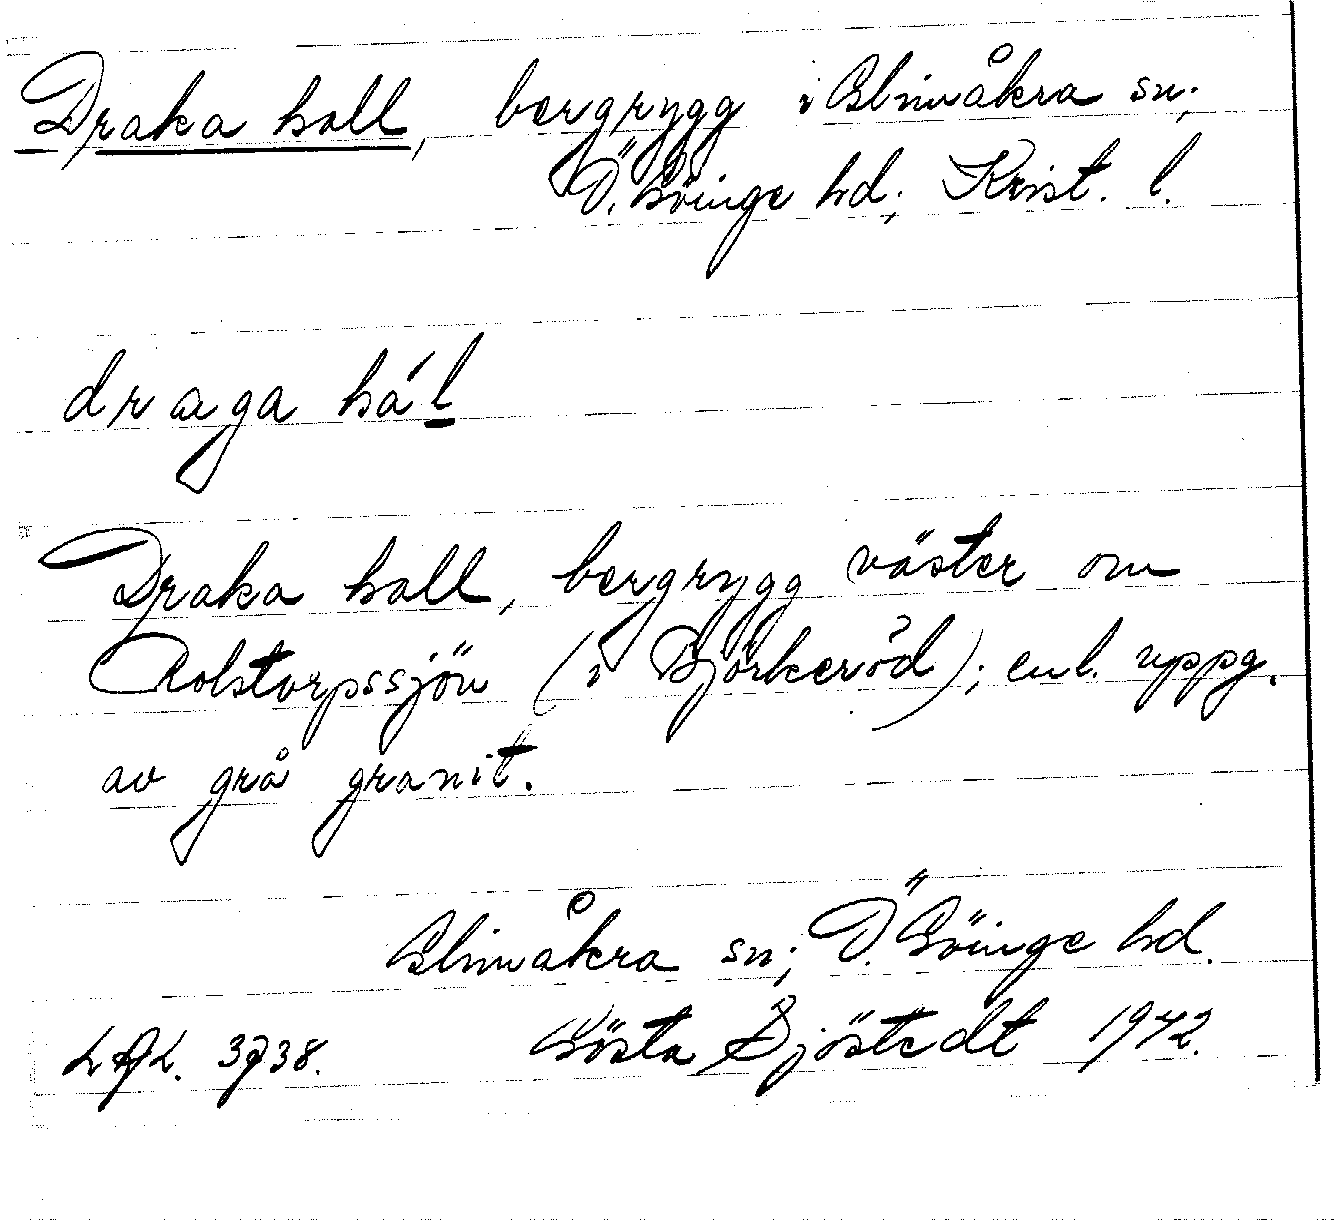 Draka hall, bergrygg i Glimåkra sn;
Ö. Göinge hd; Krist. l.
draga há l
Draka hall, bergrygg väster om
Rolstorpssjön (i Björkeröd); enl. uppg.
av grå granit.
Glimåkra sn; Ö. Göinge hd.
Gösta Sjöstedt 1942.